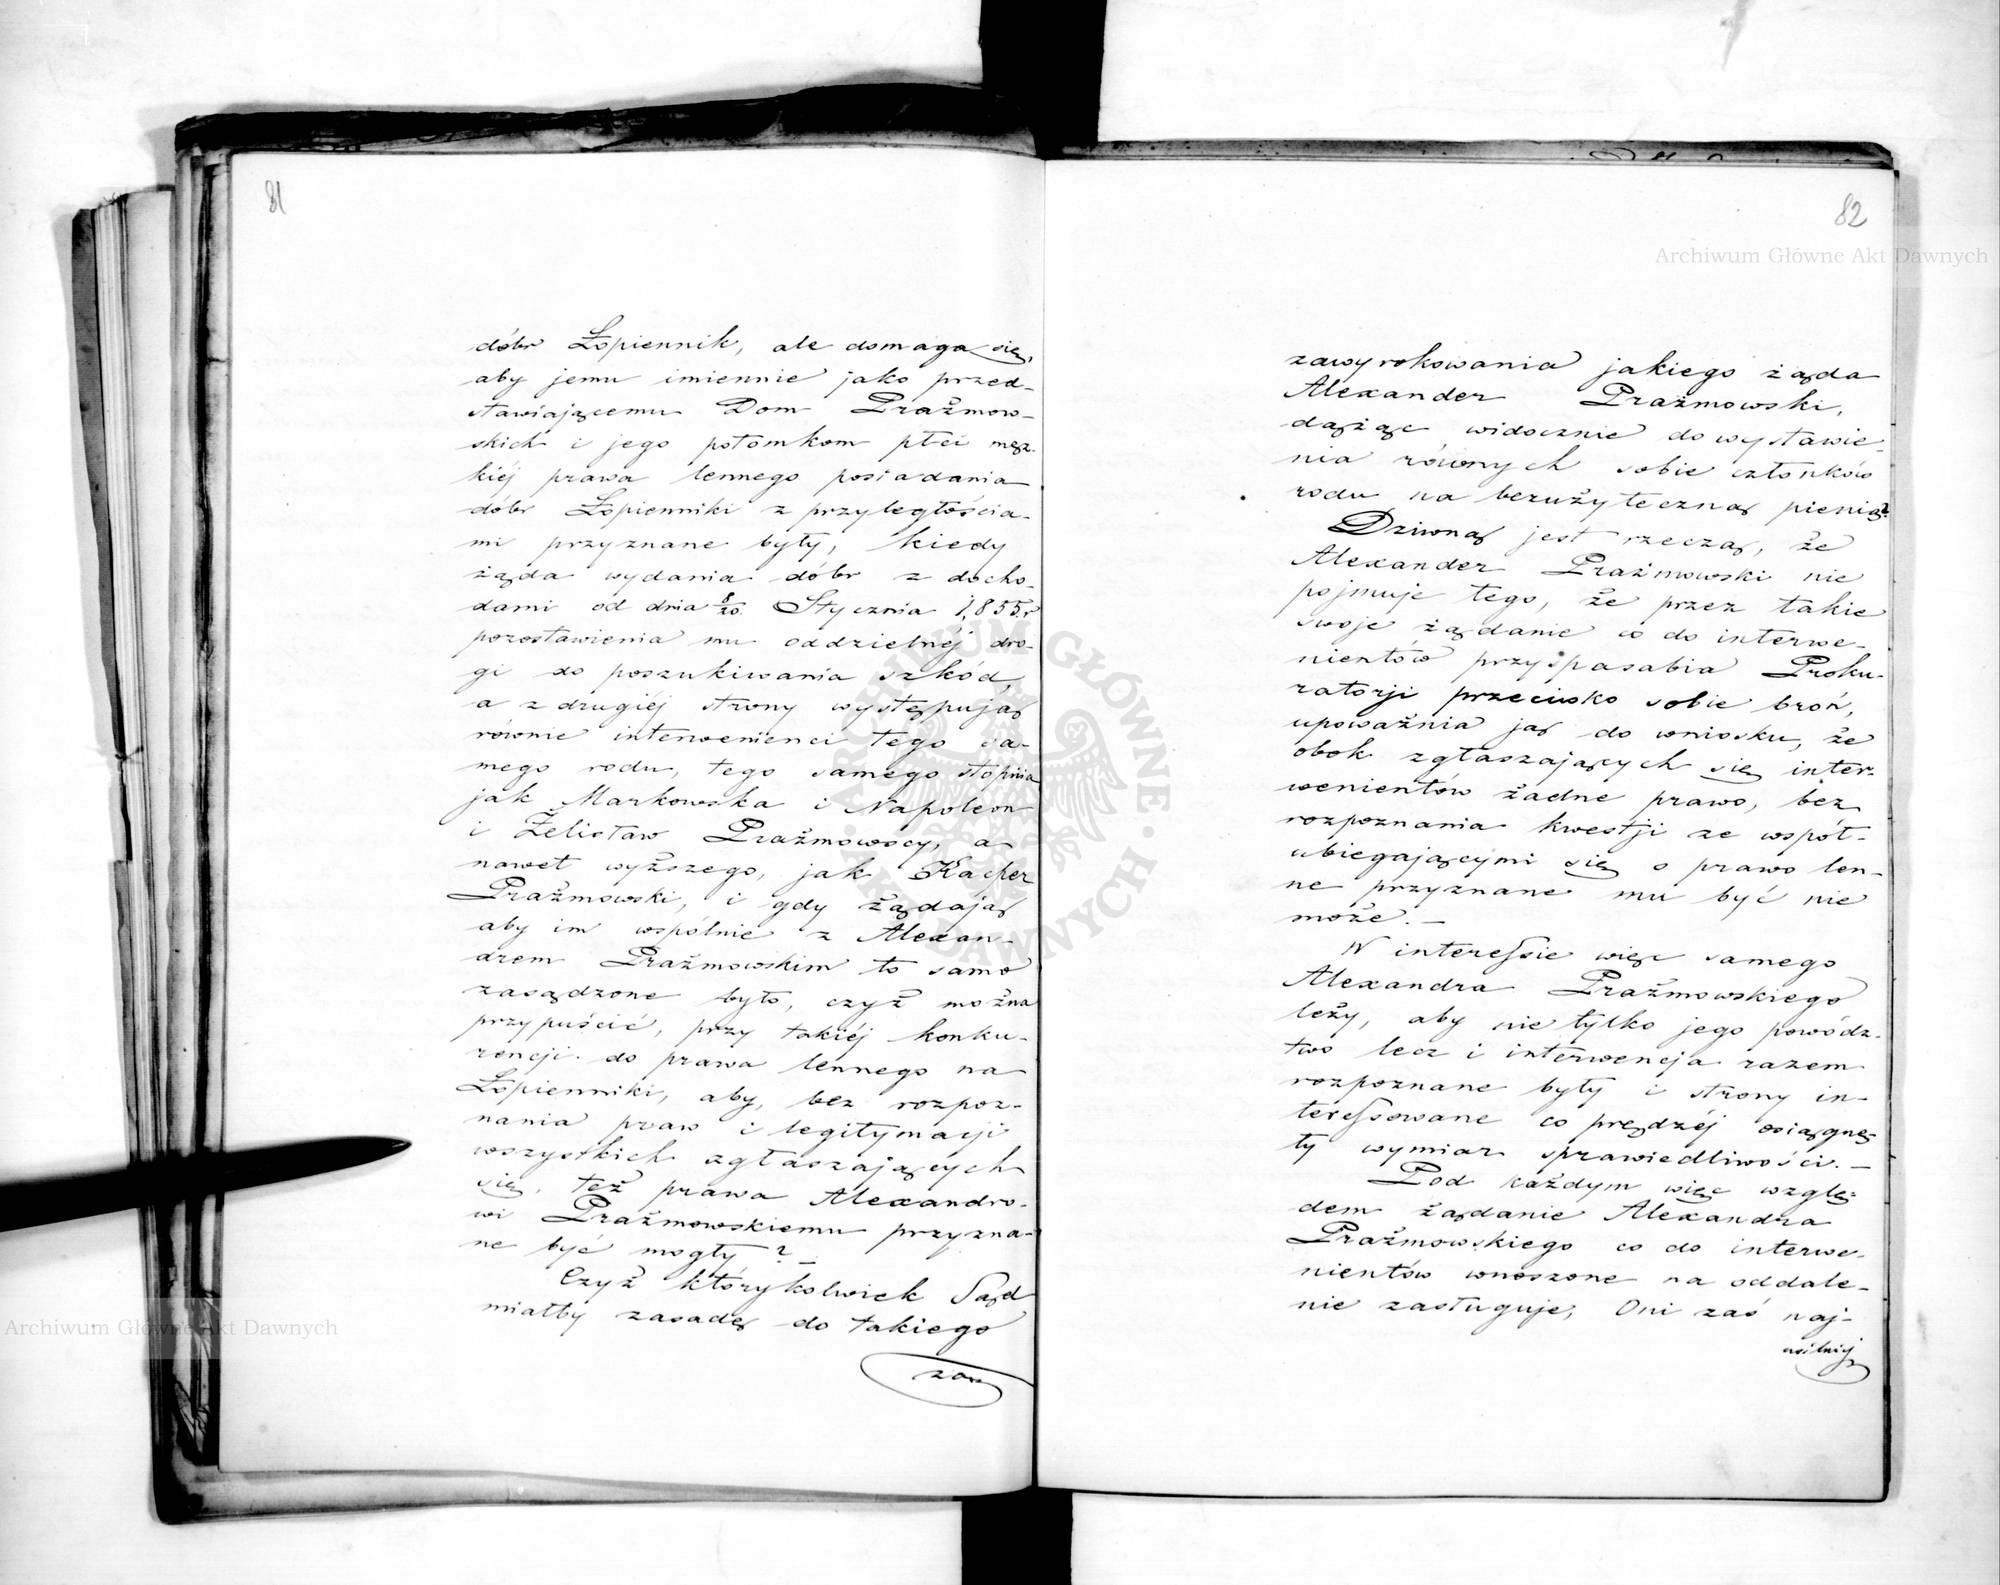 81
dóbr Łopiennik, ale domaga się,
aby jemu imiennie jako przed-
stawiającemu Dom Prażmow-
skich i jego potomkom płci męz-
kiéj prawa lennego posiadania
dóbr Łopienniki z przyległościa-
mi przyznane były, kiedy
żąda wydania dóbr z docho-
dami od dnia 8/20 Stycznia 1855 r
pozostawienia mu oddzielnéj dro-
gi do poszukiwania szkód,
a z drugiéj strony występują
równie interwenienci tego sa-
mego rodu, tego samego stopnia
jak Markowska i Napoleon
i Żelisław Prażmowscy, a
nawet wyższego, jak Kacper
Prażmowski, i gdy żądają
aby im wspólnie z Alexan-
drem Prażmowskim to samo
zasądzone było, czyż można
przypuścić, przy takiéj konku-
rencji do prawa lennego na
Łopienniki, aby, bez rozpoz-
nania praw i legitymacji
wszystkich zgłaszających
się, też prawa Alexandro-
wi Prażmowskiemu przyzna-
ne być mogły? –
Czyż którykolwiek Sąd
miałby zasadę do takiego
zaw
82
zawyrokowania jakiego żąda
Alexander Prażmowski,
dążąc widocznie do wystawie-
nia równych sobie członków
rodu na bezużyteczną pienię-
Dziwną jest rzeczą, że
Alexander Prażmowski nie
pojmuje tego, że przez takie
swoje żądanie co do interwe-
nientów przysposabia Proku-
ratorji przeciwko sobie broń,
upoważnia ją do wniosku, że
obok zgłaszających się inter-
wenientów żadne prawo, bez
rozpoznania kwestji ze współ-
ubiegającymi się o prawo len-
ne przyznane mu być nie
może. –
W interessie więc samego
Alexandra Prażmowskiego
leży, aby nie tylko jego powódz-
two lecz i interwencja razem
rozpoznane były i strony in-
teressowane co prędzéj osiągnę-
ły wymiar sprawiedliwości. –
Pod każdym więc wzglę-
dem żądanie Alexandra
Prażmowskiego co do interwe-
nientów wnoszone na oddale-
nie zasługuje, Oni zaś naj-
usilniéj
Archiwum Główne Akt Dawnych
Archiwum Główne Akt Dawnych
ARCHIWUM GŁÓWNE · AKT DAWNYCH ·